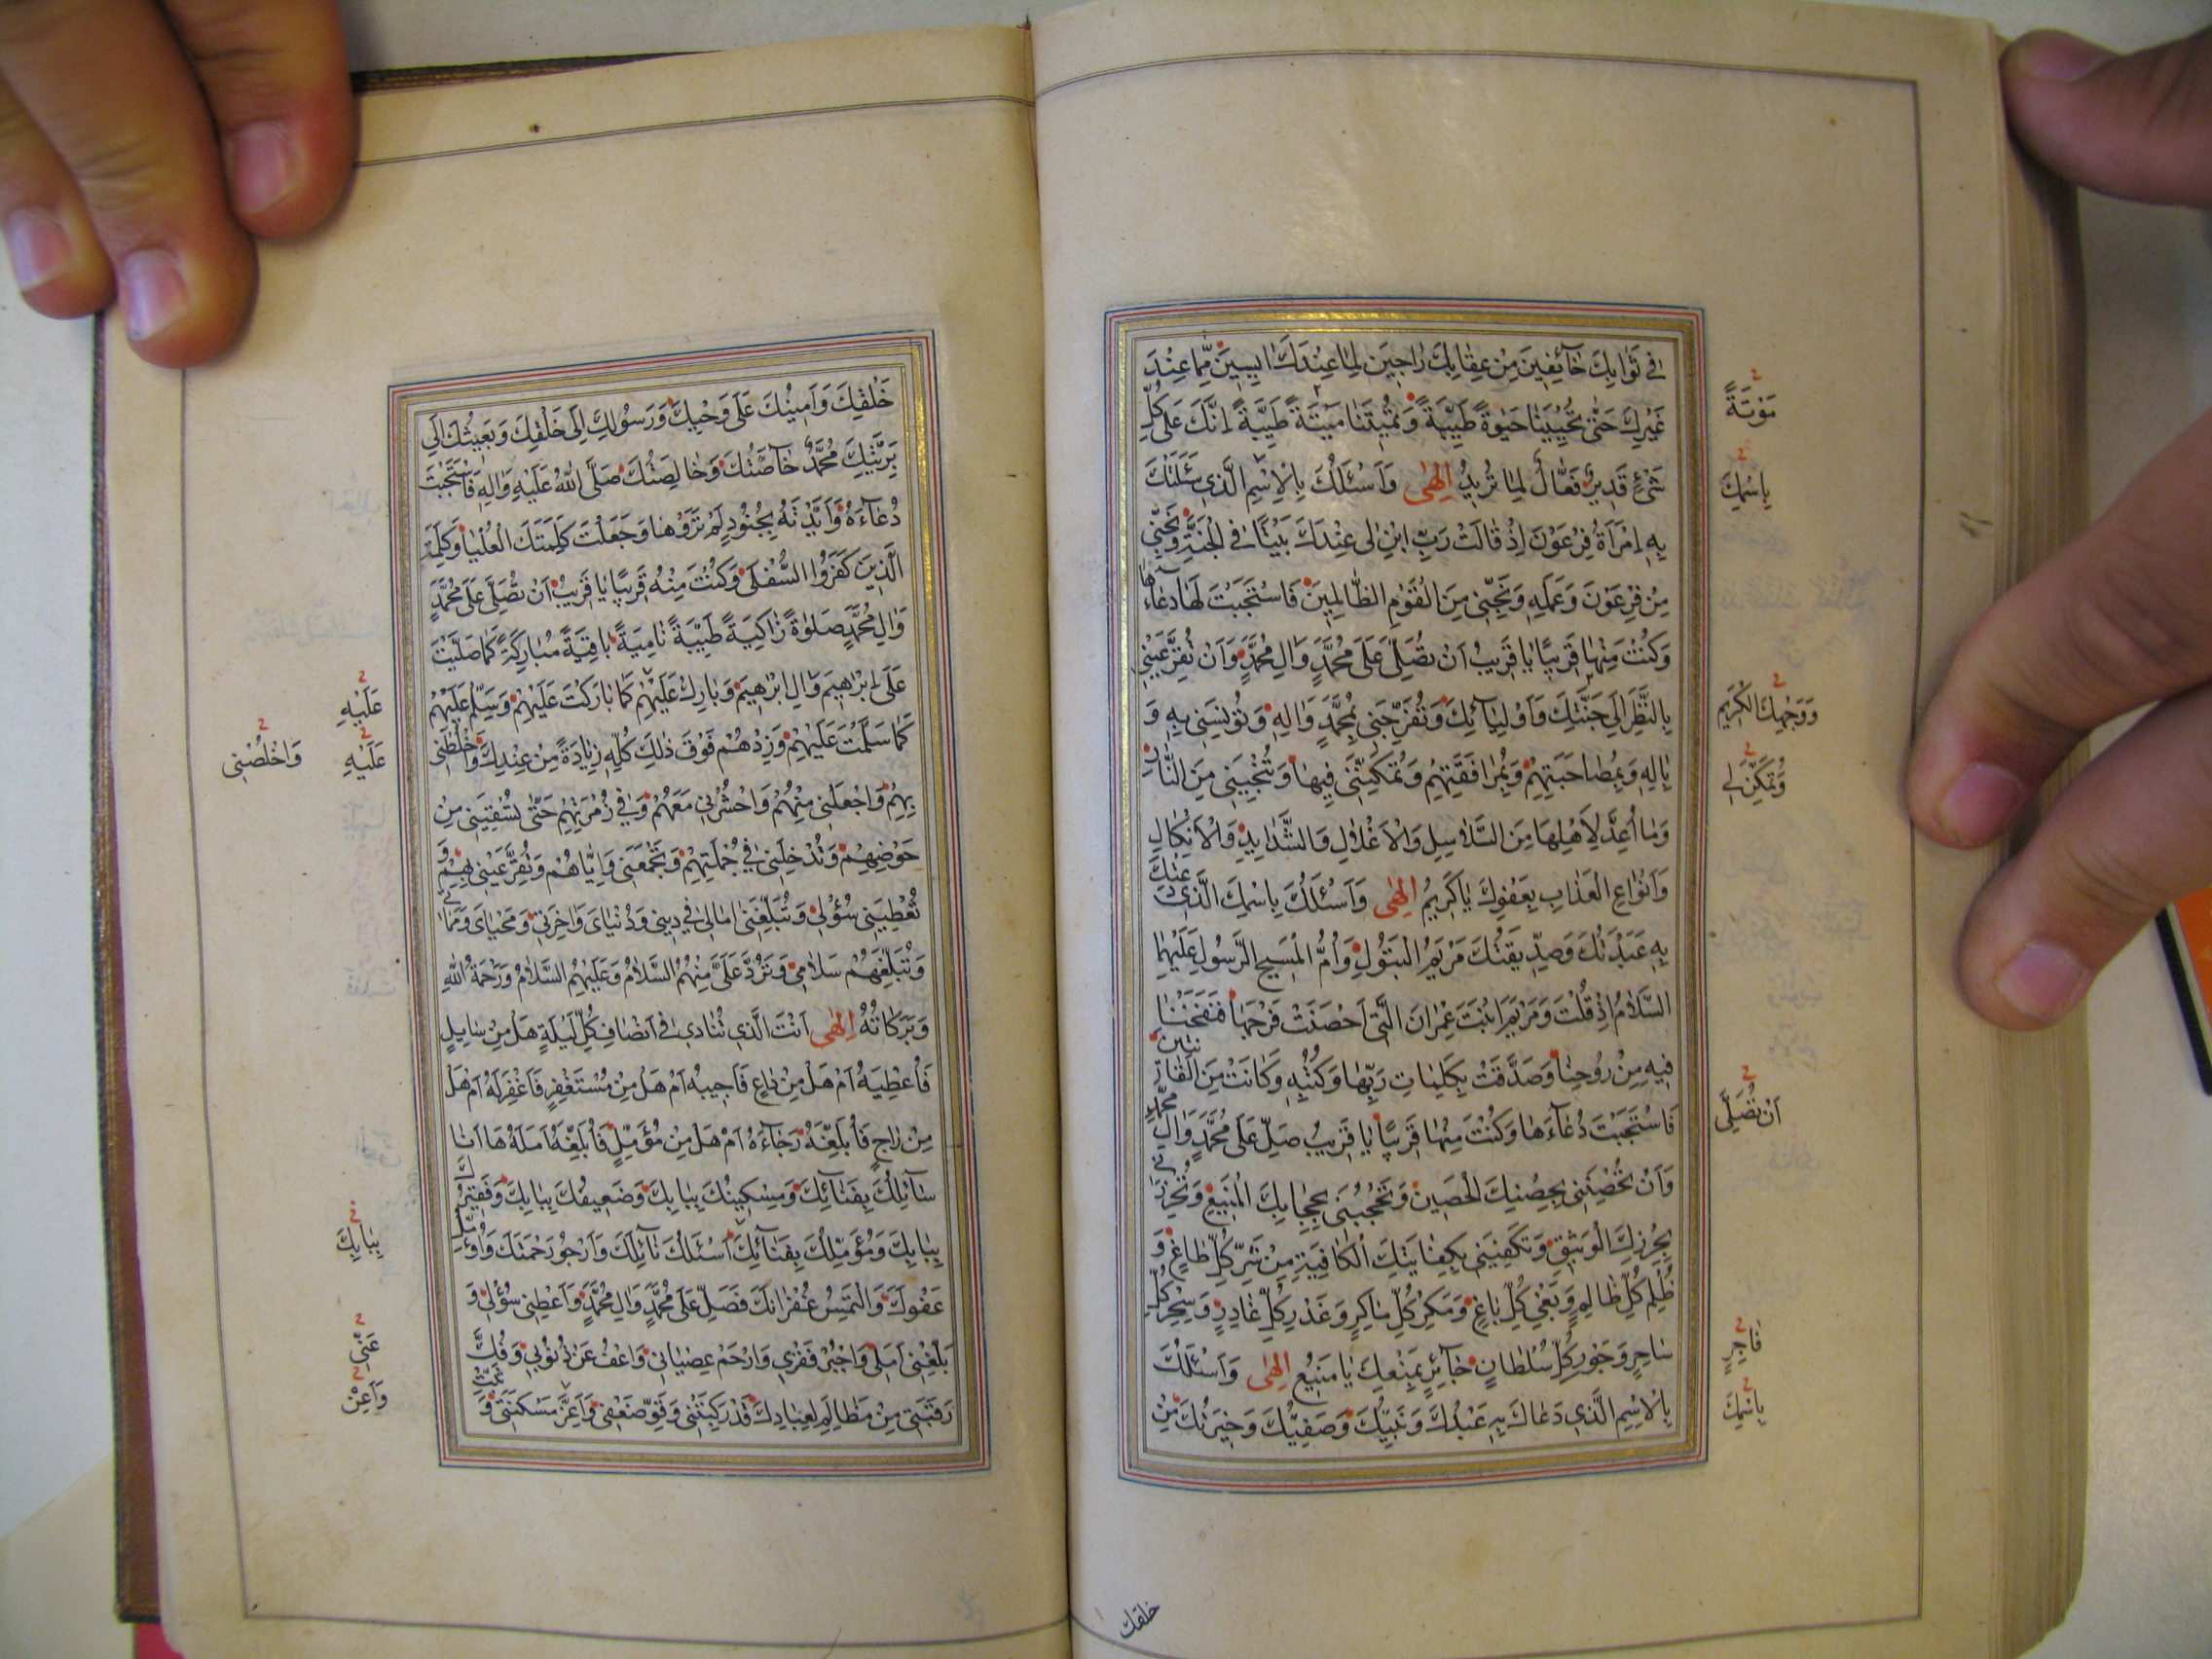 في ثَوابِكَ خآئِفينَ مِنْ عِقابِكَ راجينَ لِما عِنْدَكَ ايِسينَ مِمّا عِنْدَ
غَيْرِكَ حَتّى تُحْيِيَنا حَيوةً طَيِّبَةً وَتُميتَنا ميتَةً طَيِّبَةً اِنَّكَ عَلى كُلِّ
شَىْءٍ قَديرٌ فَعّالٌ لِما تُريدُ اِلهى وَاَسْئَلُكَ بِالْاِسْمِ الَّذى سَئَلَتْكَ
بِهِ امْرَاَةُ فِرْعَوْنَ اِذْ قالَتْ رَبِّ ابْنِ لى عِنْدَكَ بَيْتًا فى الْجَنَّةِ وَنَجِّنى
مِنْ فِرْعَوْنَ وَعَمَلِهِ وَنَجِّنى مِنَ الْقَوْمِ الظّالِمينَ فَاسْتَجَبْتَ لَها دُعاءَها
وَكُنْتَ مِنْها قَريبًا يا قَريبُ اَنْ تُصَلِّىَ عَلى مُحَمَّدٍ وَالِ مُحَمَّدٍ وَاَنْ تُقِرَّ عَيْنى
بِالنَّظَرِ اِلى جَنَّتِكَ وَاَوْلِيآئِكَ وَتُفَرِّجَنى بِمُحَمَّدٍ وَالِهِ وَتُونِسَنى بِهِ وَ
بِالِهِ وَبِمُصاحَبَتِهِمْ وَبِمُرافَقَتِهِمْ وَتُمَكِّنَنى فيها وَتُنْجِيَنى مِنَ النّارِ
وَما اُعِدَّ لِاَهْلِها مِنَ السَّلاسِلِ وَالْاَغْلالِ وَالشَّدايِدِ وَالْاَنْكالِ
وَاَنْواعِ الْعَذابِ بِعَفْوِكَ يا كَريمُ اِلهى وَاَسْئَلُكَ بِاسْمِكَ الَّذى دَعَتْكَ
بِهِ عَبْدَتُكَ وَصِدّيقَتُكَ مَرْيَمُ الْبَتُولُ وَاُمُّ الْمَسيحِ الرَّسُولِ عَلَيْهِمَا
السَّلامُ اِذْ قُلْتَ وَمَرْيَمَ ابْنَتَ عِمْرانَ الَّتى اَحْصَنَتْ فَرْجَها فَنَفَخْنا
فيهِ مِنْ رُوحِنا وَصَدَّقَتْ بِكَلِماتِ رَبِّها وَكُتُبِهِ وَكانَتْ مِنَ الْقانِتينَ
فَاسْتَجَبْتَ دُعآءَها وَكُنْتَ مِنْها قَريبًا يا قَريبُ صَلِّ عَلى مُحَمَّدٍ وَالِ مُحَمَّدٍ
وَاَنْ تُحْصِنَنى بِحِصْنِكَ الْحَصينِ وَتَحْجُبَنى بِحِجابِكَ الْمَنيعِ وَتُحْرِزَنى
بِحِرْزِكَ الْوَثيقِ وَتَكْفِيَنى بِكِفايَتِكَ الْكافِيَةِ مِنْ شَرِّ كُلِّ طاغٍ وَ
ظُلْمِ كُلِّ ظالِمٍ وَبَغْىِ كُلِّ باغٍ وَمَكْرِ كُلِّ ماكِرٍ وَغَدْرِ كُلِّ غادِرٍ وَسِحْرِ كُلِّ
ساحِرٍ وَجَوْرِ كُلِّ سُلْطانٍ جآئِرٍ بِمَنْعِكَ يا مَنيعُ اِلهى وَاَسْئَلُكَ
بِالْاِسْمِ الَّذى دَعاكَ بِهِ عَبْدُكَ وَنَبِيُّكَ وَصَفِيُّكَ وَخِيَرَتُكَ مِنْ
مَوْتَةً
بِاسْمِكَ
وَوَجْهِكَ الْكَريمِ
وَتُمَكِّنَ لى
اَنْ تُصَلِّىَ
فاجِرٍ
بِاسْمِكَ
خلقك
خَلْقِكَ وَاَمينُكَ عَلى وَحْيِكَ وَرَسُولِكَ اِلى خَلْقِكَ وَبَعيثُكَ اِلى
بَرِيَّتِكَ مُحَمَّدٌ خآصَّتُكَ وَخالِصَتُكَ صَلَّى اللهُ عَلَيْهِ وَالِهِ فَاسْتَجَبْتَ
دُعآءَهُ وَاَيَّدْتَهُ بِجُنُودٍ لَمْ تَرَوْها وَجَعَلْتَ كَلِمَتَكَ الْعُلْيا وَكَلِمَةَ
الَّذينَ كَفَرُوا السُّفْلى وَكُنْتَ مِنْهُ قَريبًا يا قَريبُ اَنْ تُصَلِّىَ عَلى مُحَمَّدٍ
وَالِ مُحَمَّدٍ صَلوةً زاكِيَةً طَيِّبَةً نامِيَةً باقِيَةً مُبارَكَةً كَما صَلَّيْتَ
عَلى اِبْراهيمَ وَالِ اِبْراهيمَ وَبارِكْ عَلَيْهِمْ كَما بارَكْتَ عَلَيْهِمْ وَسَلِّمْ عَلَيْهِمْ
كَما سَلَّمْتَ عَلَيْهِمْ وَزِدْهُمْ فَوْقَ ذلِكَ كُلِّهِ زِيادَةً مِنْ عِنْدِكَ وَاخْلُطْنى
بِهِمْ وَاجْعَلْنى مِنْهُمْ وَاحْشُرْنى مَعَهُمْ وَفى زُمْرَتِهِمْ حَتّى تَسْقِيَنى مِنْ
حَوْضِهِمْ وَتُدْخِلَنى فى جُمْلَتِهِمْ وَتَجْمَعَنى وَاِيّاهُمْ وَتُقِرَّ عَيْنى بِهِمْ وَ
تُعْطِيَنى سُؤْلى وَتُبَلِّغَنى امالى فى دينى وَدُنْياىَ وَاخِرَتى وَمَحْياىَ وَمَماتى
وَتُبَلِّغَهُمْ سَلامى وَتَرُدَّ عَلَىَّ مِنْهُمُ السَّلامَ وَعَلَيْهِمُ السَّلامُ وَرَحْمَةُ اللهِ
وَبَرَكاتُهُ اِلهى اَنْتَ الَّذى تُنادى فى اَنْصافِ كُلِّ لَيْلَةٍ هَلْ مِنْ سايِلٍ
فَاُعْطِيَهُ اَمْ هَلْ مِنْ داعٍ فَاُجيبَهُ اَمْ هَلْ مِنْ مُسْتَغْفِرٍ فَاَغْفِرَ لَهُ اَمْ هَلْ
مِنْ راجٍ فَاُبَلِّغَهُ رَجآءَهُ اَمْ هَلْ مِنْ مُؤَمِّلٍ فَاُبَلِّغَهُ اَمَلَهُ ها اَنَا
سآئِلُكَ بِفِنآئِكَ وَمِسْكينُكَ بِبابِكَ وَضَعيفُكَ بِبابِكَ وَفَقيرُكَ
بِبابِكَ وَمُؤَمِّلُكَ بِفِنآئِكَ اَسْئَلُكَ نآئِلَكَ وَاَرْجُو رَحْمَتَكَ وَاُؤَمِّلُ
عَفْوَكَ وَاَلْتَمِسُ غُفْرانَكَ فَصَلِّ عَلى مُحَمَّدٍ وَالِ مُحَمَّدٍ وَاَعْطِنى سُؤْلى وَ
بَلِّغْنى اَمَلى وَاجْبُرْ فَقْرى وَارْحَمْ عِصْيانى وَاعْفُ عَنْ ذُنُوبى وَفُكَّ
رَقَبَتى مِنْ مَظالِمَ لِعِبادِكَ قَدْ رَكِبَتْنى وَقَوِّ ضَعْفى وَاَعِزَّ مَسْكَنَتى وَ ثَبِّتْ
عَلَيْهِ
عَلَيْهِ وَاخْلُصْنى
بِبابِكَ
عَنّى
وَاَعِنْ